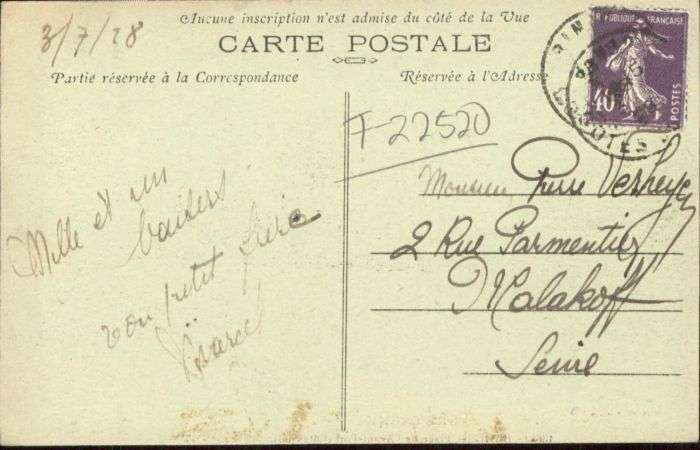 Aucune inscription n'est admise du côté de la Vue
3/7/28
CARTE POSTALE
Partie réservée à la Correspondance
Réservée à l'Adresse
REPUBLIQUE FRANÇAISE
40
POSTES
F-22520
Mille et un
baisers
ton petit frère
Marcel
Monsieur Pierre
2 Rue Parmentier
Malakoff
Seine